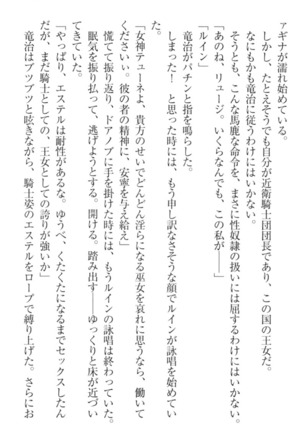 アギナが濡れ始めている。
　しかし、たとえそうでも自分が近衛騎士団団長であり、この国の王女だ。
なにもかも竜治に従うわけにはいかない。
　そうとも、こんな馬鹿な命令を、まさに性奴隷の扱いには屈するわけにはいかない。
「あのね、リュージ。いくらなんでも、この私が――」
「ルイン」
　竜治がパチンと指を鳴らした。
　しまった！　と思った時には、もう申し訳なさそうな顔でルインが詠唱を始めてい
た。
「女神テューネよ、貴方のせいでどんどん淫らになる巫女を哀れに思うなら、働いて
くださいぃ。彼の者の精神に、安寧を与え給え」
　慌てて振り返り、ドアノブに手を掛けた時には、もうルインの詠唱は終わっていた。
　眠気を振り払って、逃げようとする。開ける。踏み出す――ゆっくりと床が近づい
てきていた。
「やっぱり、エステルは耐性があるな。ゆうべ、くたくたになるまでセックスしたん
だが、まだ騎士としての、王女としての誇りが強いか」
　竜治はブツブツと呟きながら、騎士姿のエステルをロープで縛り上げた。さらにお